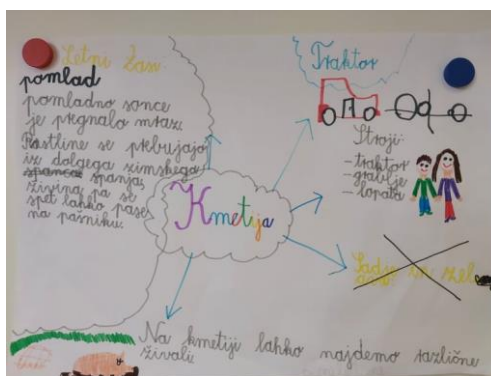 Letni čas
pomlad
pomladno sonce
je pregnalo mraz.
Rastline se prebujajo
iz dolgega zimskega
spanja,
živina pa se
spet lahko pase
na pašniku.
Traktor
Stroji:
-traktor
-grablje
-lopata
Kmetija
Sadje in zel
Na kmetiji lahko najdemo različne
živali.